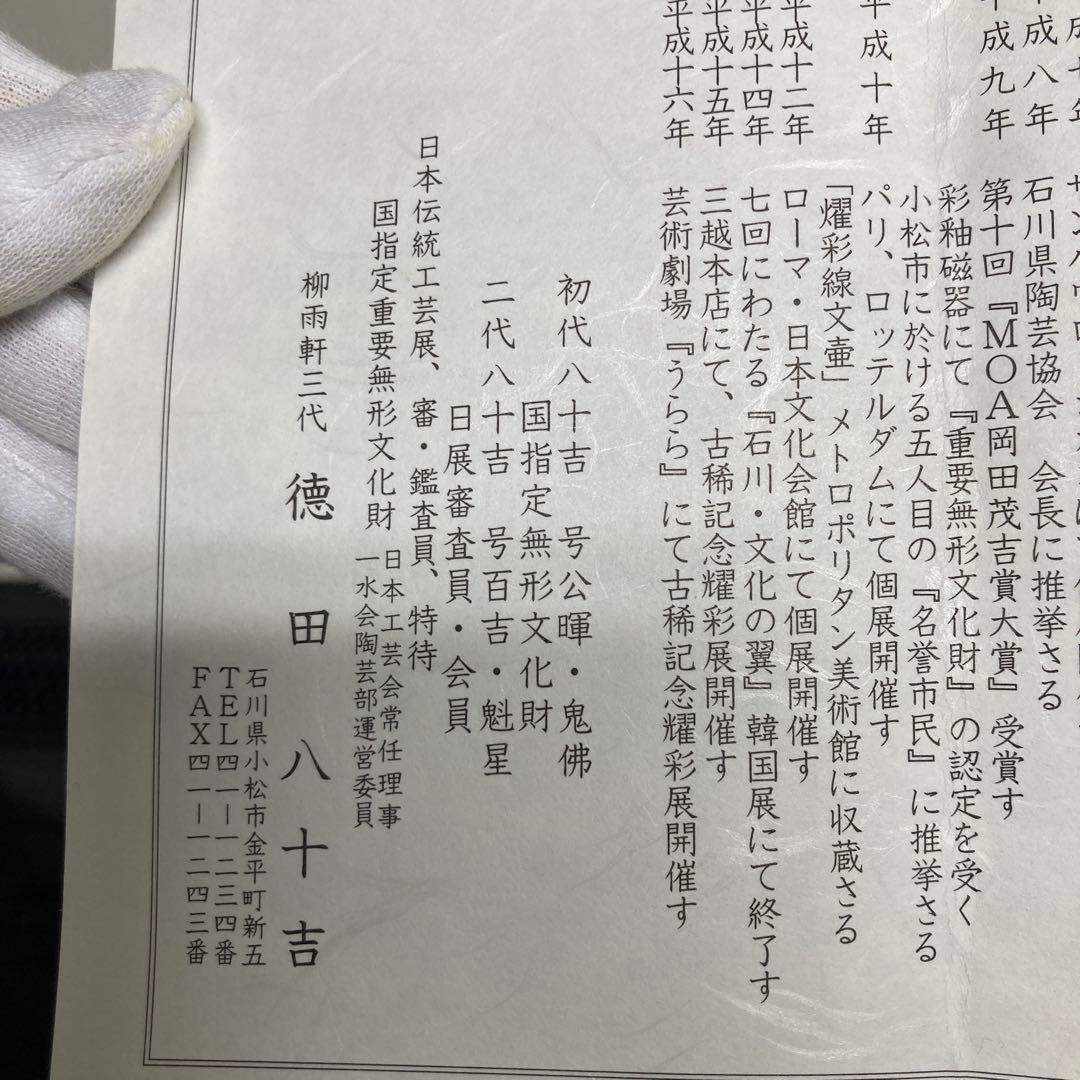 石川県陶芸協会 会長に推挙さる
平成九年 第十回『MOA岡田茂吉賞大賞』受賞す
彩釉磁器にて『重要無形文化財』の認定を受く
小松市に於ける五人目の『名誉市民』に推挙さる
平成十年 パリ、ロッテルダムにて個展開催す
「燿彩線文壷」メトロポリタン美術館に収蔵さる
平成十二年 ローマ・日本文化会館にて個展開催す
平成十四年 七回にわたる『石川・文化の翼』韓国展にて終了す
平成十五年 三越本店にて、古稀記念耀彩展開催す
平成十六年 芸術劇場『うらら』にて古稀記念耀彩展開催す
初代八十吉 号公暉・鬼佛
国指定無形文化財
二代八十吉 号百吉・魁星
日展審査員・会員
日本伝統工芸展、審・鑑査員、特待
国指定重要無形文化財
日本工芸会常任理事
一水会陶芸部運営委員
柳雨軒三代 徳田八十吉
石川県小松市金平町新五
TEL四一ー一二三四番
FAX四一ー一二四三番